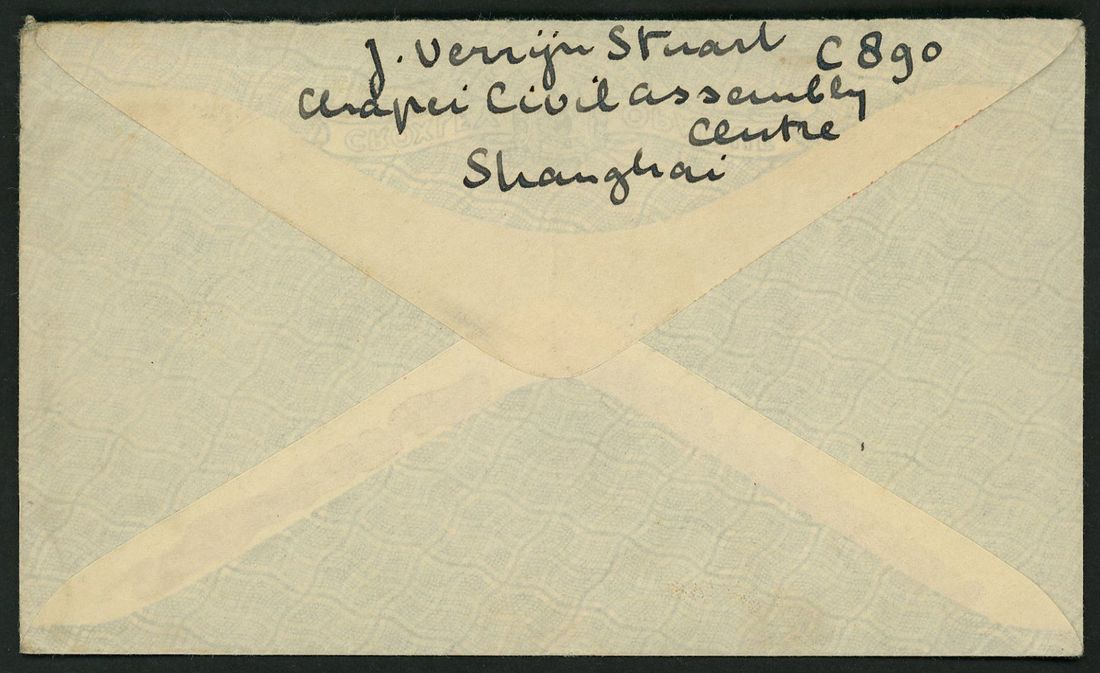 J. Verrijn Stuart C 890
Chapei Civil assembly
Centre
Shanghai